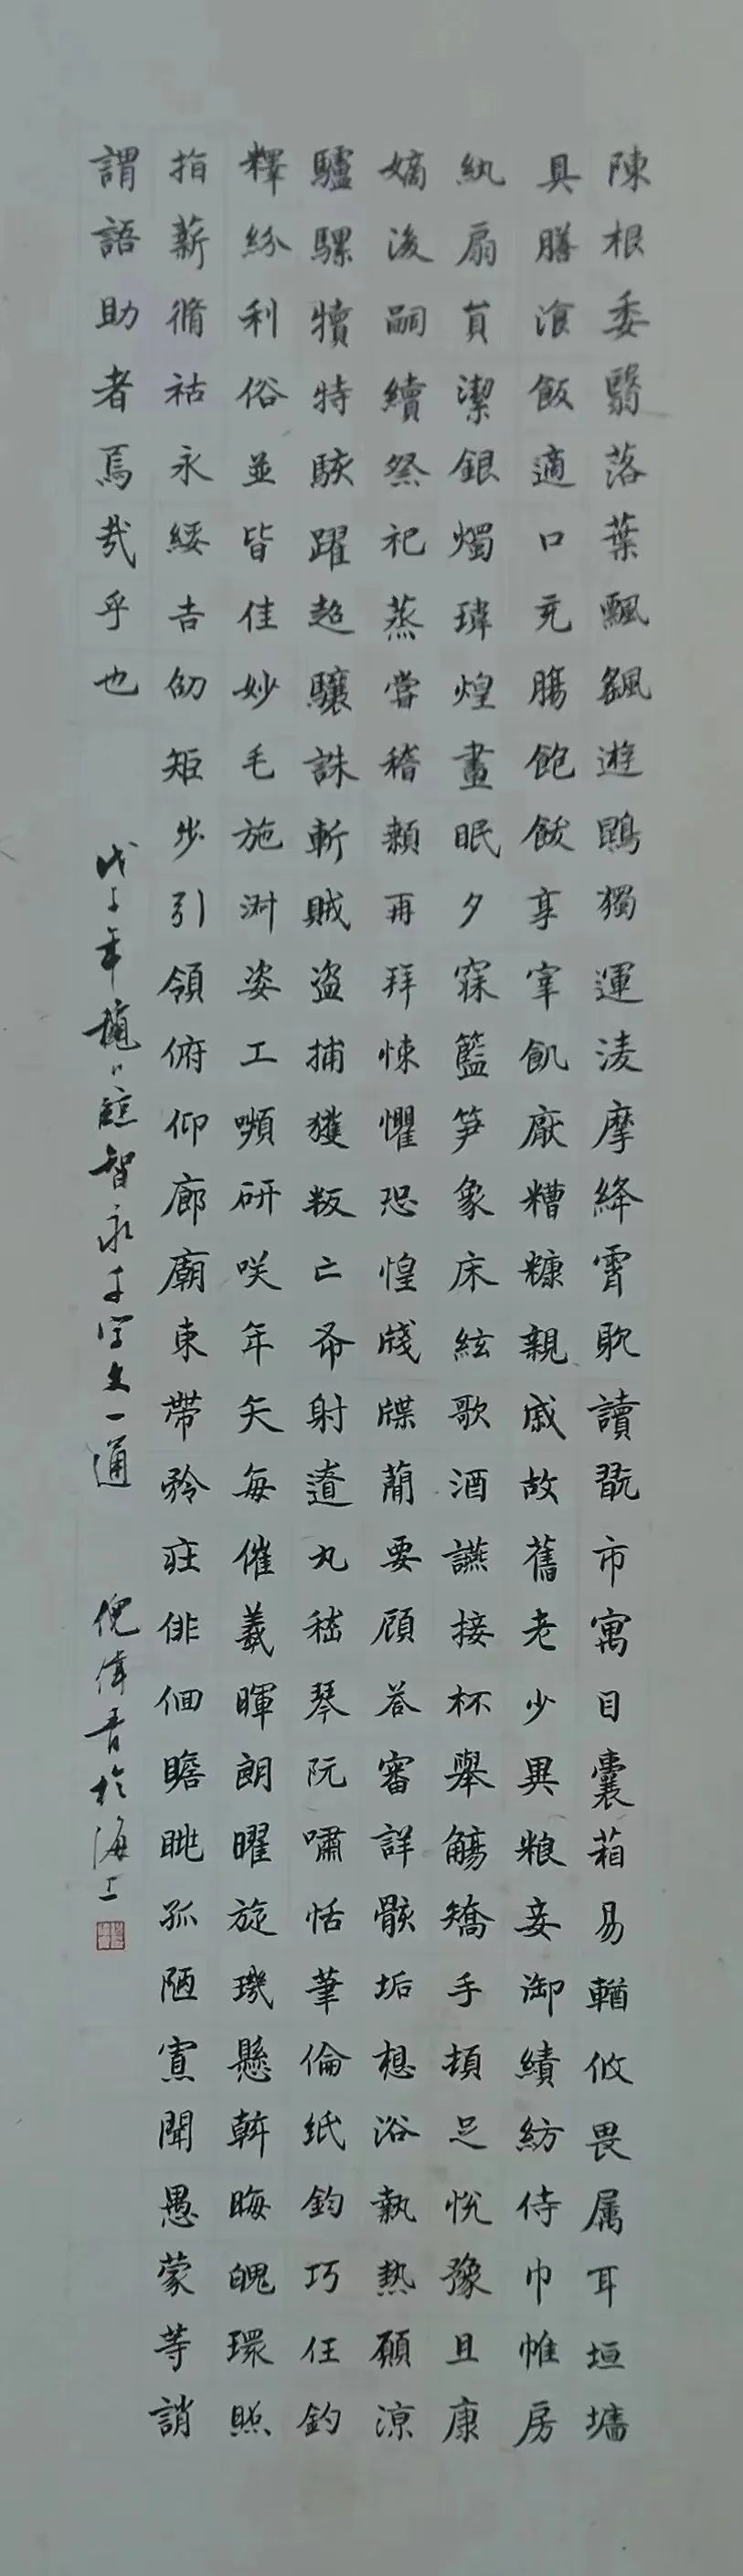 陳根委翳落葉飄颻遊鵾獨運淩摩絳霄耽讀翫市寓目囊葙易輶攸畏属耳垣墻
具膳飡飯適口充腸飽飫享宰飢厭糟糠親戚故舊老少異粮妾御績紡侍巾帷房
紈扇員潔銀燭瑋煌畫眠夕寐籃笋象床絃歌酒讌接杯舉觴矯手頓足悅豫且康
嫡後嗣續祭祀蒸嘗稽顙再拜悚懼恐惶牋牒蕳要顧荅審詳骸垢想浴執熱願涼
驢騾犢特駭躍超驤誅斬賊盜捕獲叛亡布射遼丸嵇琴阮嘯恬筆倫紙鈞巧任釣
釋紛利俗並皆佳妙毛施淑姿工嚬研咲年矢每催羲暉朗曜旋璣懸斡晦魄環照
指薪脩祜永綏吉劭矩步引領俯仰廊廟束帶矜莊俳佪瞻眺孤陋寡聞愚蒙等誚
謂語助者焉哉乎也
戊子年穐臨智永千字文一通 倪偉書於海上